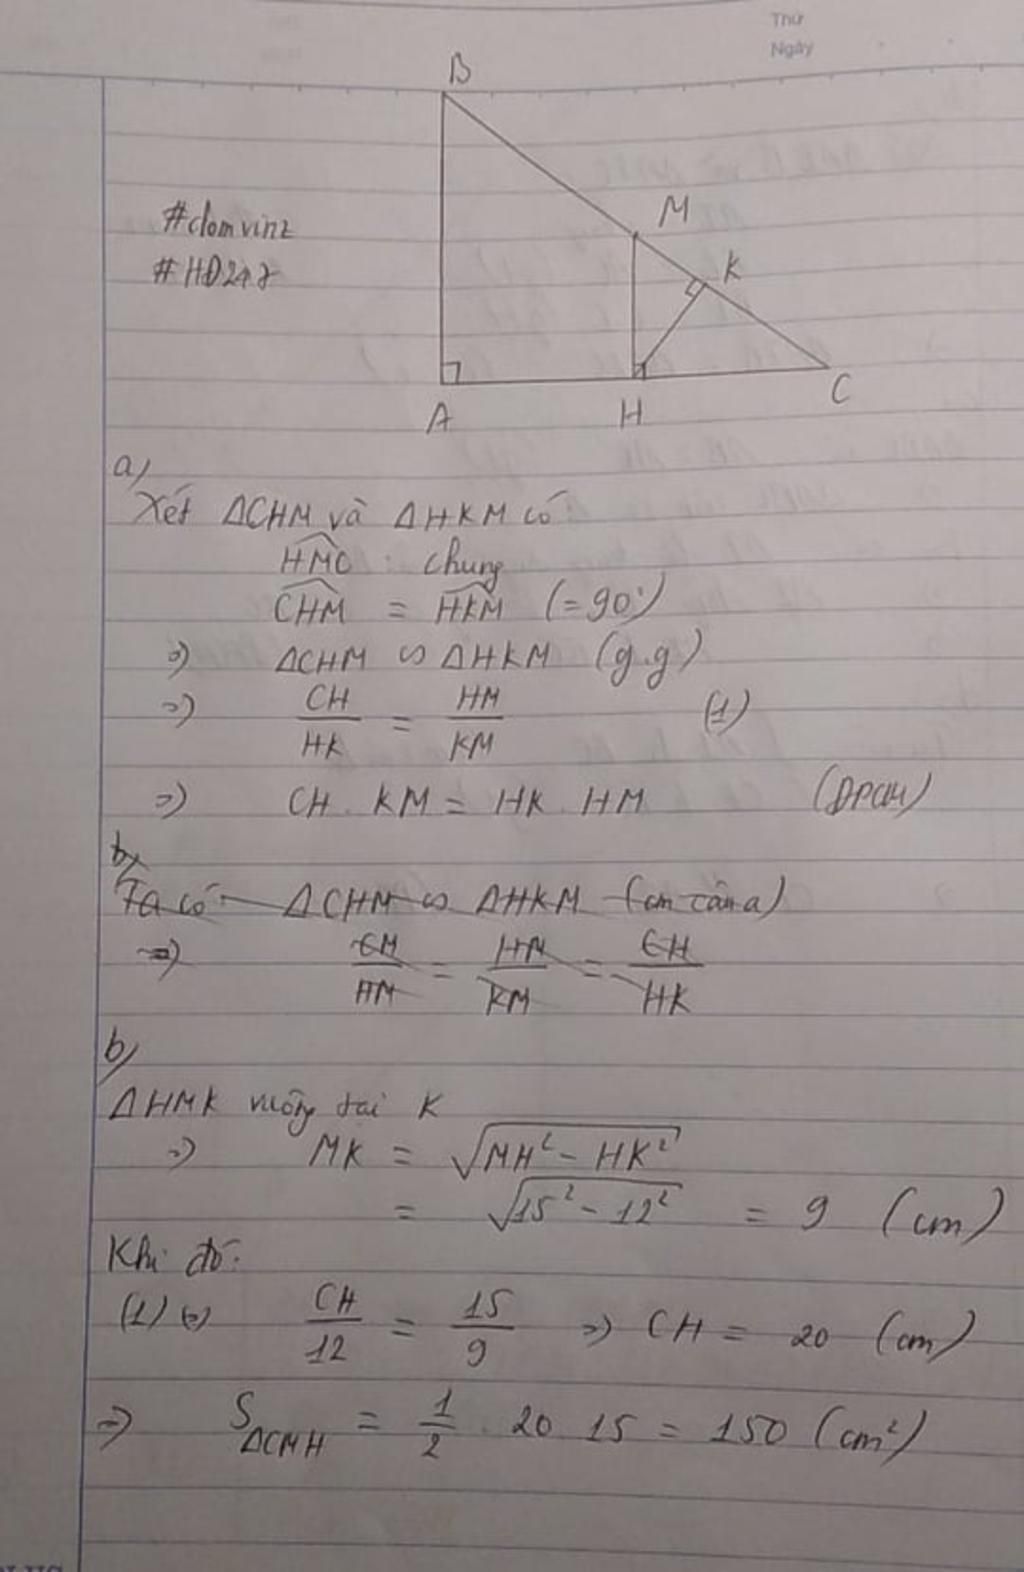 Thứ
Ngày
B
M
#clomvinz
K
#HĐ247
C
A
H
a)
Xét ΔCHM và ΔHKM có
HMC : chung
CHM = HKM (=90°)
=> ΔCHM ∽ ΔHKM (g.g)
=> CH/HK = HM/KM (1)
=> CH . KM = HK . HM (ĐPCM)
b)
Ta có ΔCHM ∽ ΔHKM (cm câu a)
=> CM/HM = HM/KM = CH/HK
b)
ΔHMK vuông tại K
=> MK = √(MH² - HK²)
= √(15² - 12²) = 9 (cm)
Khi đó:
(1) <=> CH/12 = 15/9 => CH = 20 (cm)
=> SΔCMH = 1/2 . 20 15 = 150 (cm²)